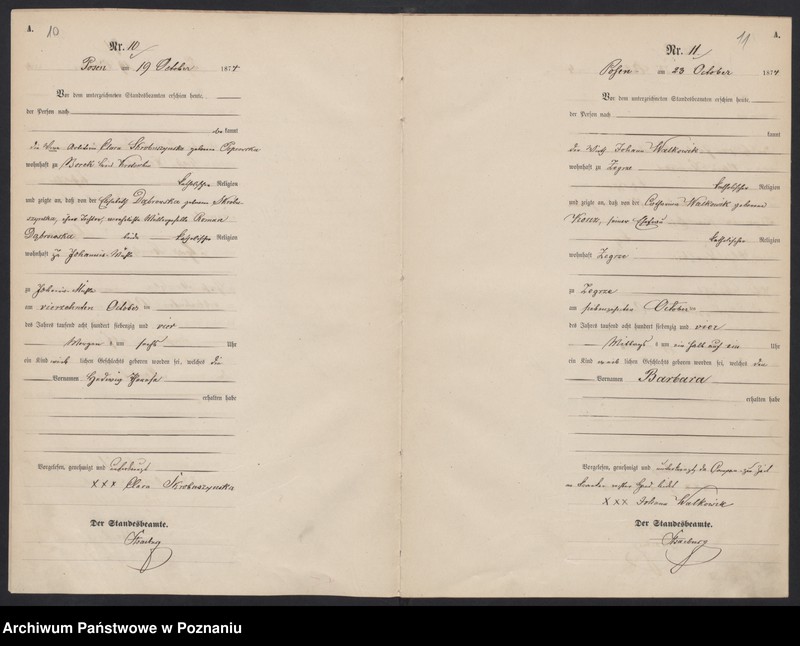 A. 10
Nr. 10
Posen am 19 October 1874
Vor dem unterzeichneten Standesbeamten erschien heute,
der Person nach
be kannt
die Clara Skrobuszynska geborene
wohnhaft zu
katholischer Religion
und zeigte an, daß von der Dąbrowska geborene Skrobu-
szynska, ihrer Tochter,
Dąbrowska beide katholischer Religion
wohnhaft zu Johannis-Mühle
zu Johannis-Mühle
am vierzehnten October
des Jahres tausend acht hundert siebenzig und vier
Morgens um sechs Uhr
ein Kind weib lichen Geschlechts geboren worden sei, welches die
Vornamen Hedwig
erhalten habe
Vorgelesen, genehmigt und
XXX Clara Skrobuszynska
Der Standesbeamte.
11 A.
Nr. 11
Posen am 23 October 1874
Vor dem unterzeichneten Standesbeamten erschien heute,
der Person nach
kannt
der Wirth Johann Walkowiak
wohnhaft zu Zegrze
katholischer Religion
und zeigte an, daß von der Catharina Walkowiak geborene
seiner Ehefrau
katholischer Religion
wohnhaft Zegrze
zu Zegrze
am siebenzehnten October
des Jahres tausend acht hundert siebenzig und vier
Mittags um ein halb auf ein Uhr
ein Kind weib lichen Geschlechts geboren worden sei, welches den
Vornamen Barbara
erhalten habe
Vorgelesen, genehmigt und
XXX Johann Walkowiak
Der Standesbeamte.
Archiwum Państwowe w Poznaniu